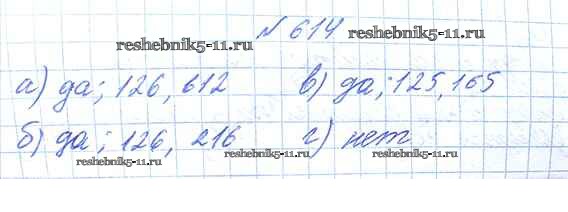 № 614
reshebnik5-11.ru reshebnik5-11.ru
а) да; 126, 612 в) да; 125, 165
б) да; 126, 216 г) нет
reshebnik5-11.ru reshebnik5-11.ru